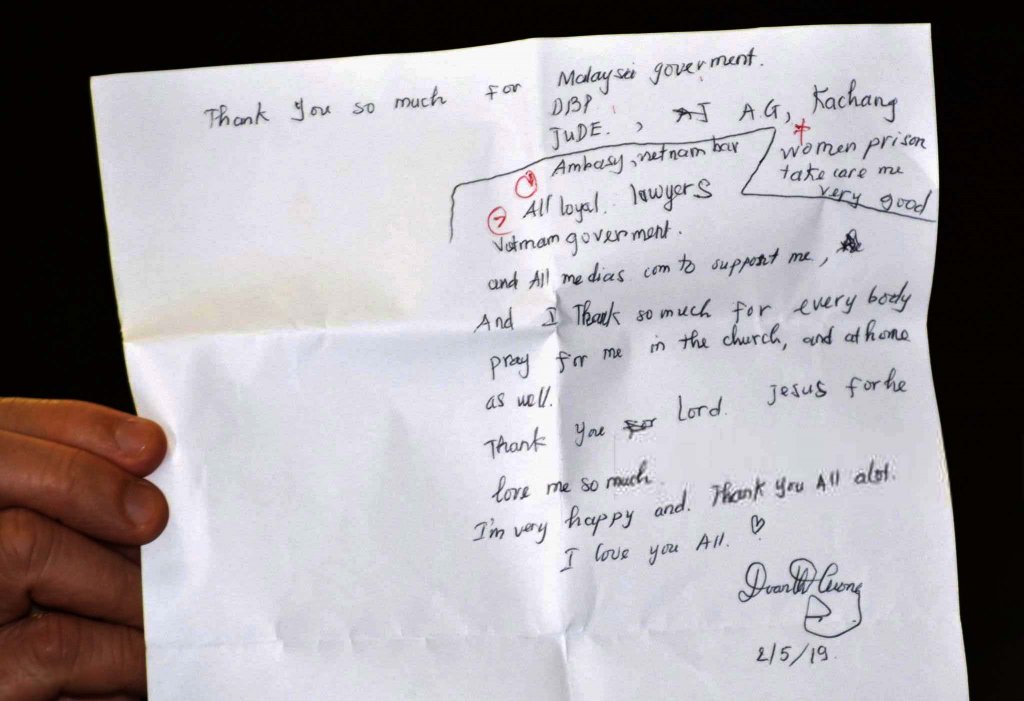 Thank you so much for Malaysei goverment.
DPP
JUDE. , AG, Kachang
women prison
take care me
very good
Ambasy, vietnam bar
All loyal. lawyers
Vetmam goverment.
and All medias com to support me,
And I Thank so much for every body
pray for me in the church, and at home
as well.
Thank you Lord. Jesus for he
love me so much
I'm very happy and. Thank you All alot.
I love you All. ♡
Doan Thi Huong
2/5/19.